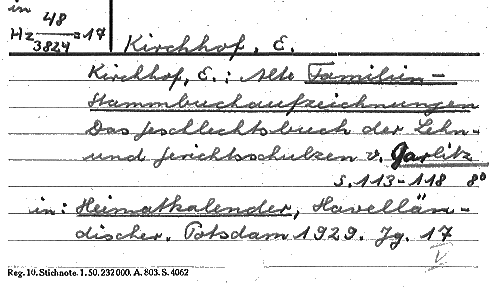 in
48
Hz 3824 = 17
Kirchhof, E.
Kirchhof, E.: Alte Familien-
Stammbuchaufzeichnungen
Das Geschlechtsbuch der Lehn-
und Gerichtsschulzen v. Garlitz
S. 113-118 8°
in: Heimatkalender, Havellän-
discher. Potsdam 1929. Jg. 17
V
Reg. 10. Stichnote. 1. 50. 232 000. A. 803. S. 4062